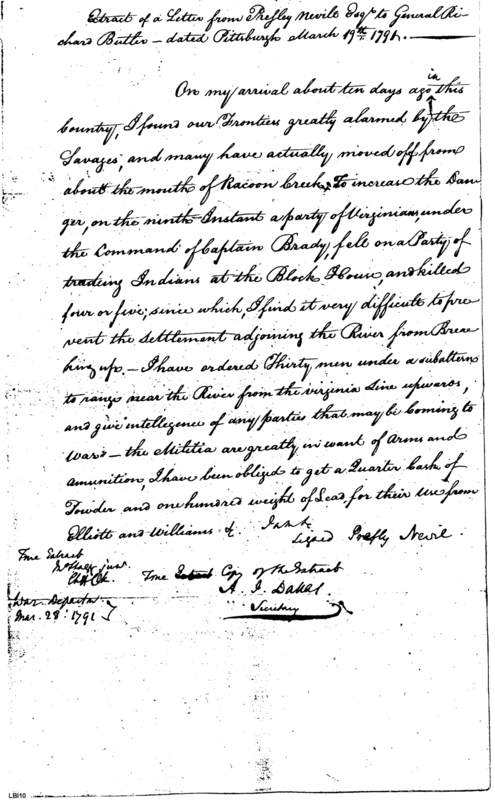 Extract of a Letter from Presley Nevile Esqr to General Ri-
chard Butler – dated Pittsburgh March 19th 1791. —
On my arrival about ten days ago in this
Country, I found our Frontiers greatly alarmed by the
Savages, and many have actually moved off from
about the mouth of Racoon Creek, To increase the Dan-
ger, on the ninth Instant a party of Virginians, under
the Command of Captain Brady, fell on a Party of
tradeing Indians at the Block House, and killed
four or five; since which, I find it very difficult to pre
vent the settlement adjoining the River from Brea
king up. – I have ordered Thirty men under a subaltern
to range near the River from the virginia Line upwards,
and give intellegence of any parties that may be Coming to
War – the Militia are greatly in want of Arms and
Amunition, I have been obliged to get a Quarter Cask of
Powder and one hundred weight of Lead, for their use from
Elliott and Williams &c.
Signed Presley Nevil.
True Extract
junr.
Chf Clk.
True Copy of the Extract
A. J. Dallas.
Secretary
War Departmt
Mar. 28: 1791
LBI10